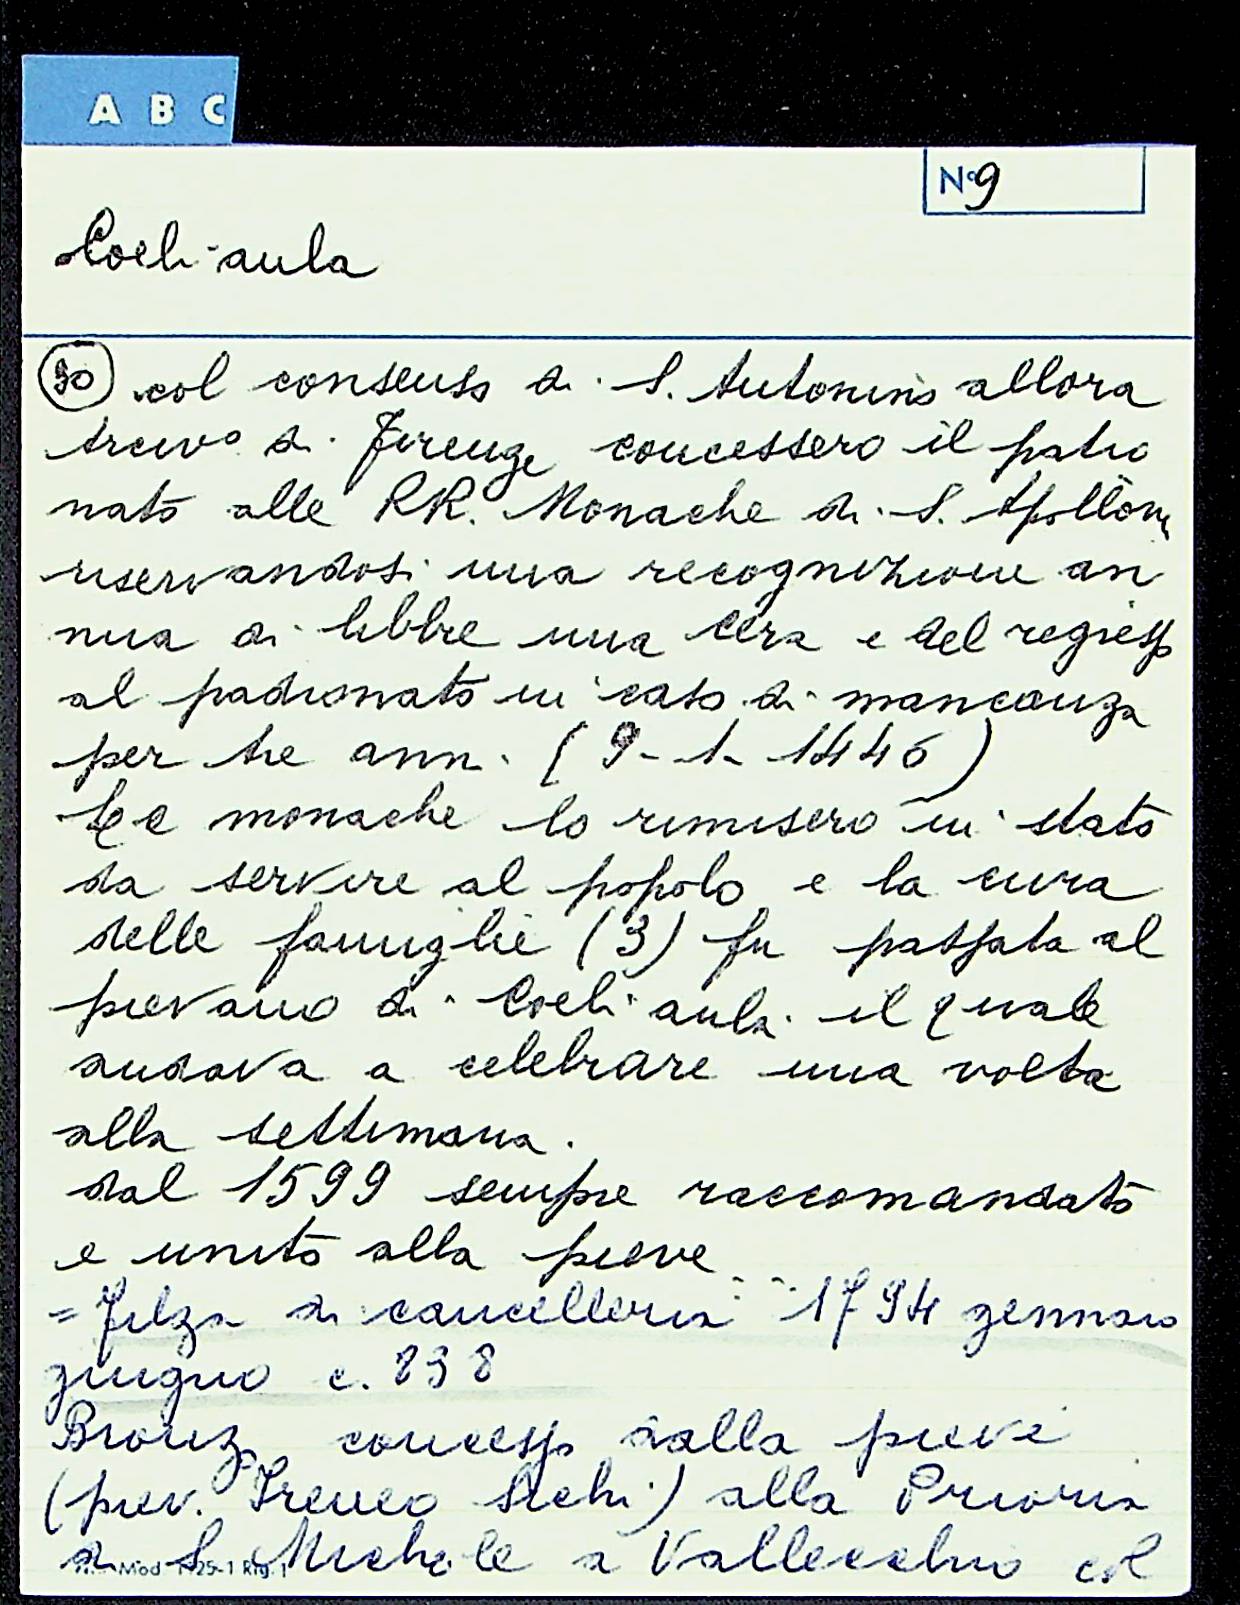 A B C
N° 9
Coeli-aula
30 col consenso di S. Antonino allora
Arcivo di Firenze concessero il patro
nato alle RR. Monache di S. Apolloni
riservandosi una recognizione an
nua di libbre una cera e del regresso
al padronato in caso di mancanza
per tre anni. (9-1-1446)
Le monache lo rimisero in stato
da servire al popolo e la cura
delle famiglie (3) fu passata al
pievano di Coeli aula il quale
andava a celebrare una volta
alla settimana.
dal 1599 sempre raccomandato
e unito alla pieve
= Filza di cancelleria 1794 gennaio
giugno c. 838
Bronzo concesso dalla pieve
(piev. Ireneo) alla Prioria
di S. Michele a Vallecchio col
Mod. 125-1 Rig. 1